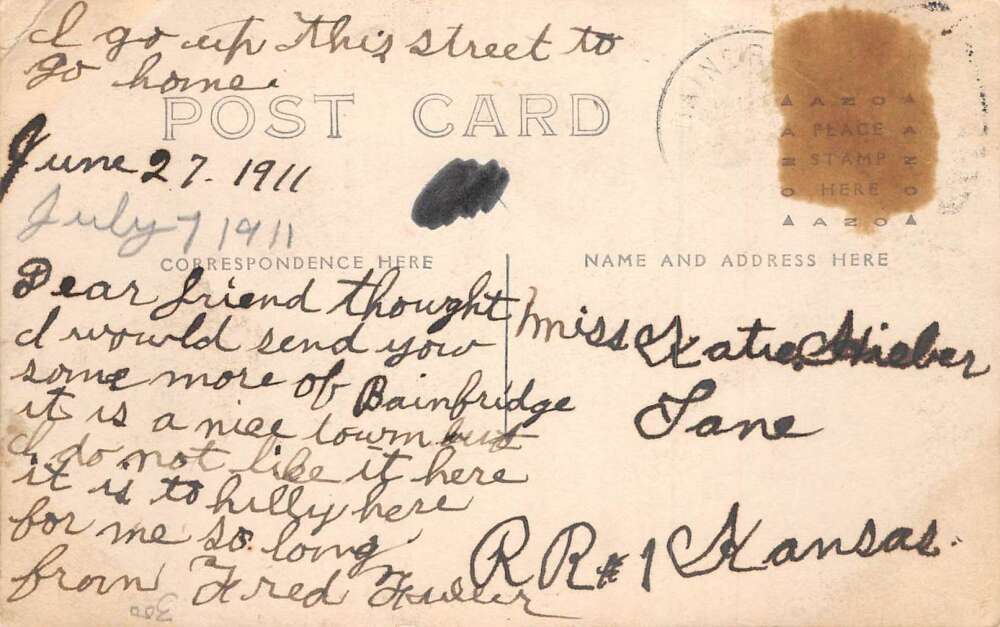 I go up This street to
go home.
POST CARD
June 27. 1911
July 7 1911
CORRESPONDENCE HERE
NAME AND ADDRESS HERE
AZO
PLACE
STAMP
HERE
AZO
Dear friend thought
I would send you
some more of Bainbridge
it is a nice town but
I do not like it here
it is to hilly here
for me so long
from Fred
Miss Katie
Lane
RR#1 Kansas.
300